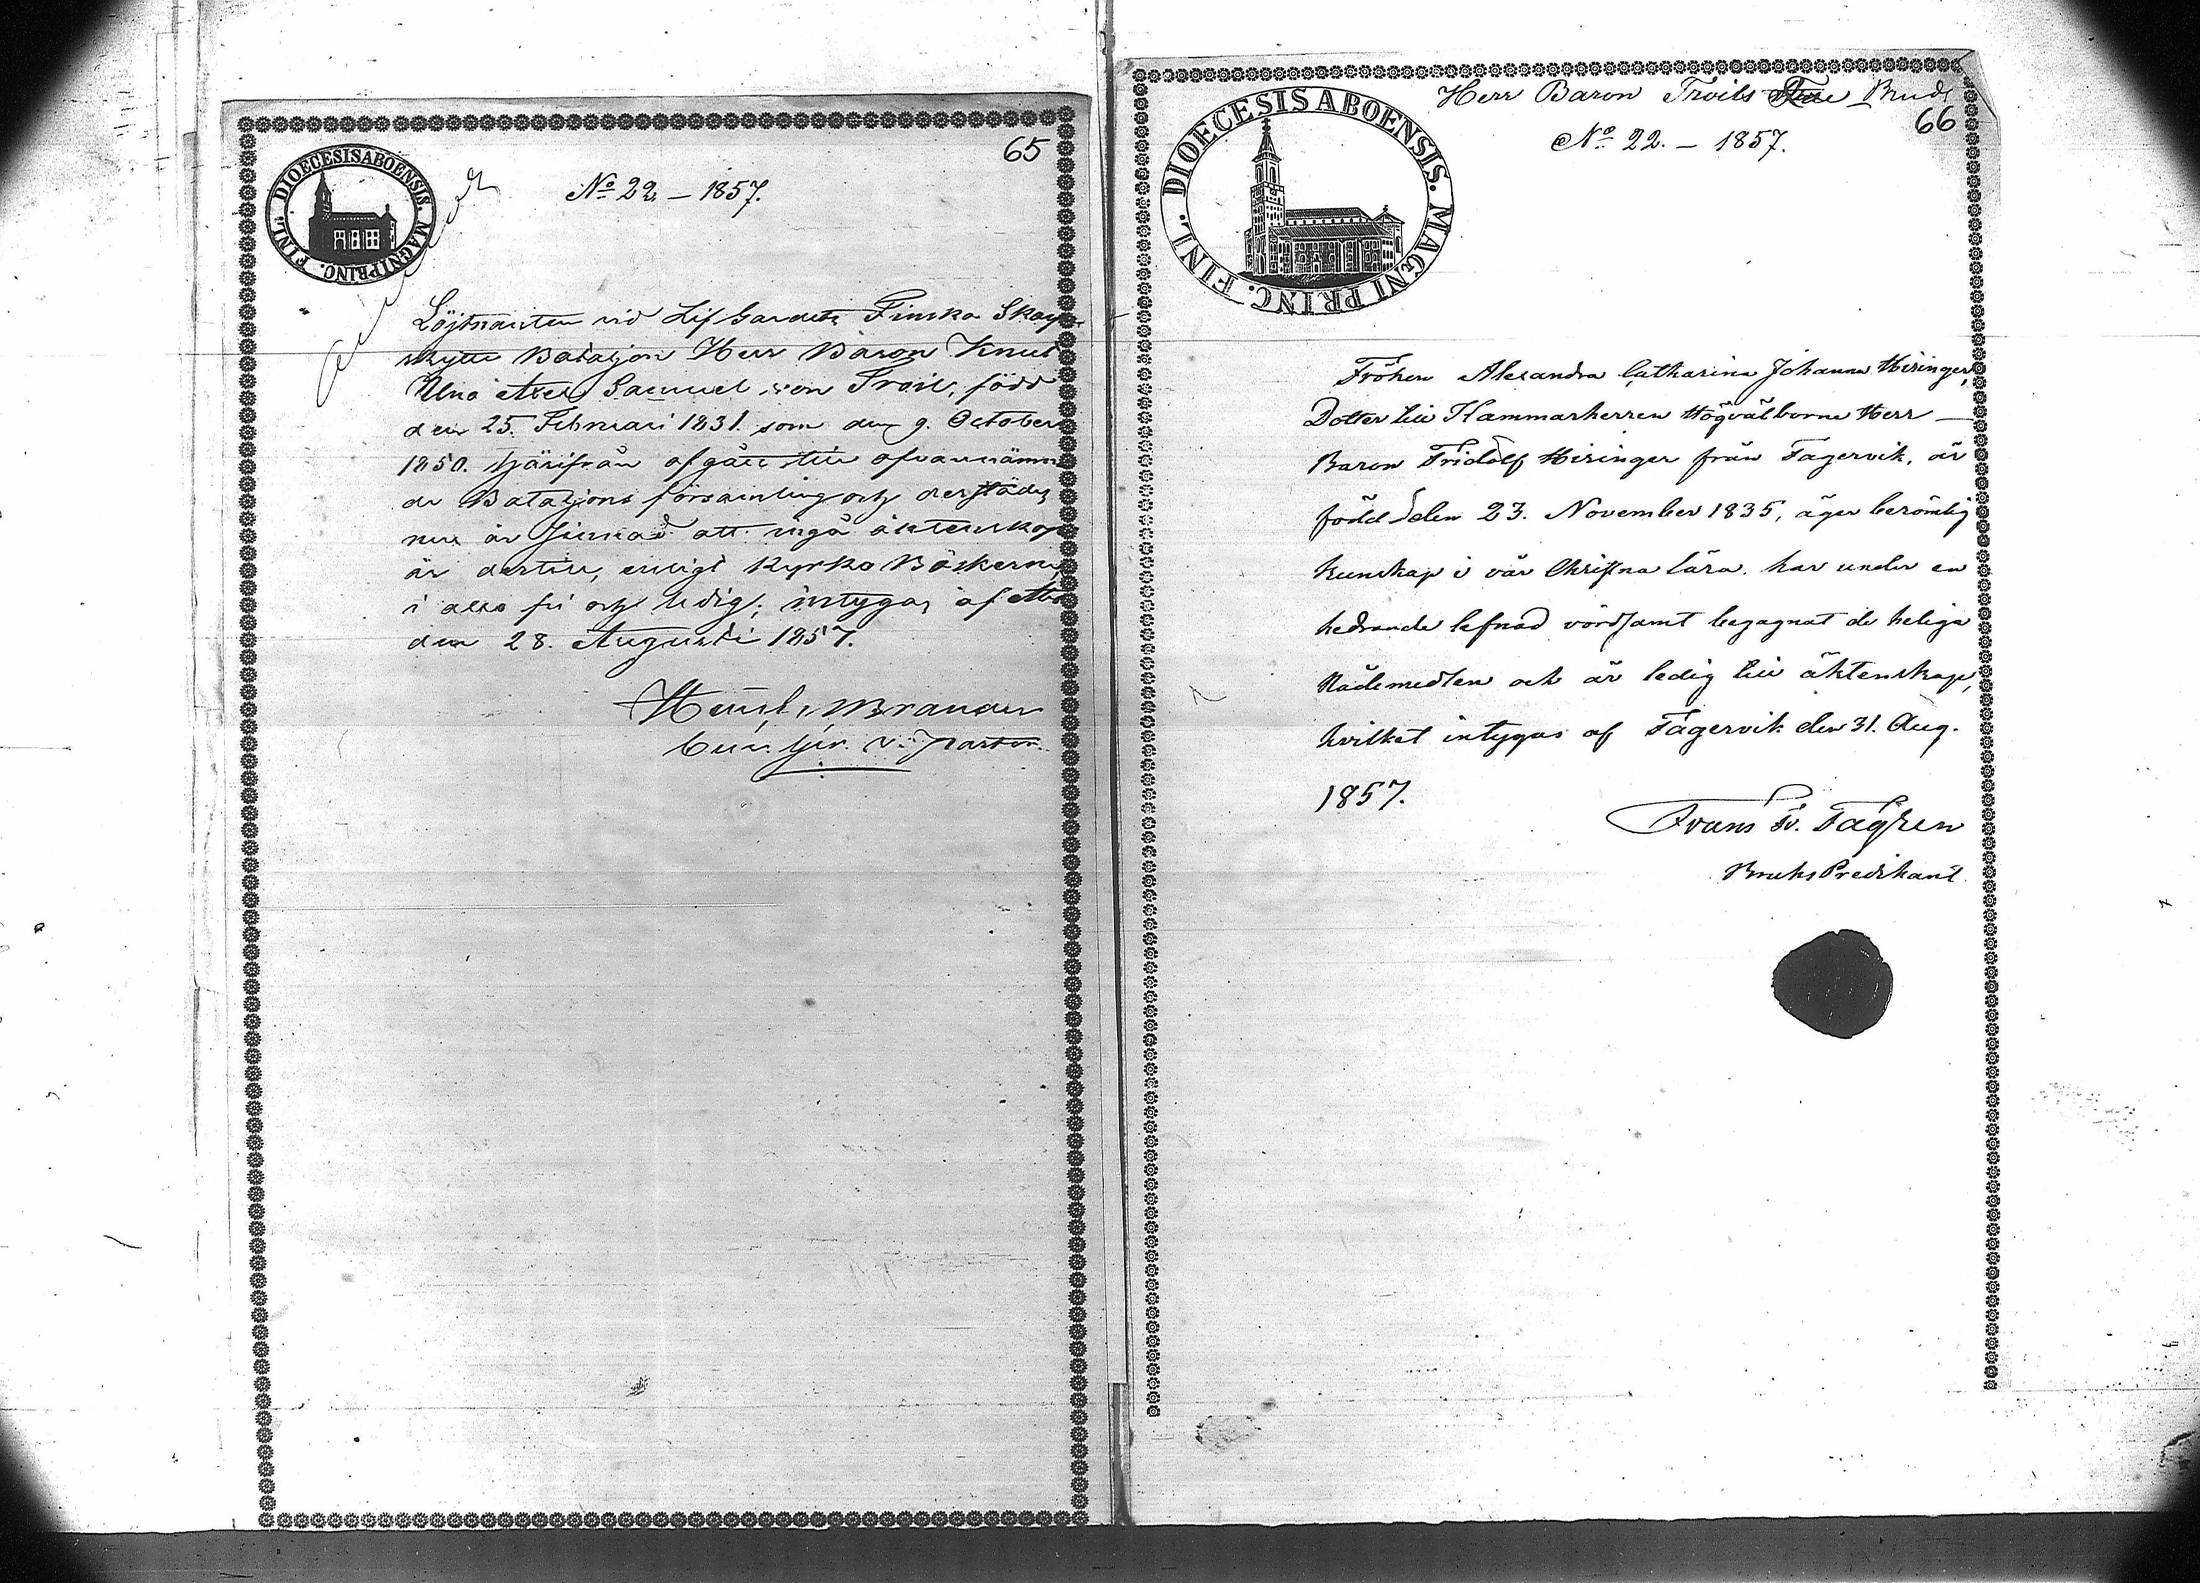 65
DIOECESIS ABOENSIS. MAGNI PRINC. FINL.
No 22 – 1857.
Löjtnanten vid Lif Gardets Finska Skarp-
skytte Bataljon Herr Baron Knut
Uno Axel Samuel von Troil, född
den 25. Februari 1831. som den 9. October
1850. härifrån afgått till ofvannämn-
de Bataljons församling och derstädes
nu är sinnad att ingå äktenskap
är dertill, enligt Kyrko Böckerne,
i allo fri och ledig; intygas af Åbo
den 28. Augusti 1857.
Henr. Brander
v. Pastor.
Herr Baron Troils Brud
66
No 22. – 1857.
DIOECESIS ABOENSIS. MAGNI PRINC. FINL.
Fröken Alexandra Catharina Johanna Hisinger,
Dotter till Kammarherren Högvälborne Herr
Baron Fridolf Hisinger från Fagervik, är
född den 23. November 1835, äger berömlig
kunskap i vår Christna lära. har under en
hedrande lefnad vördsamt begagnat de heliga
Nådemedlen och är ledig till äktenskap,
hvilket intygas af Fagervik den 31. Aug.
1857.
Frans Fr. Fågren
Bruks Predikant